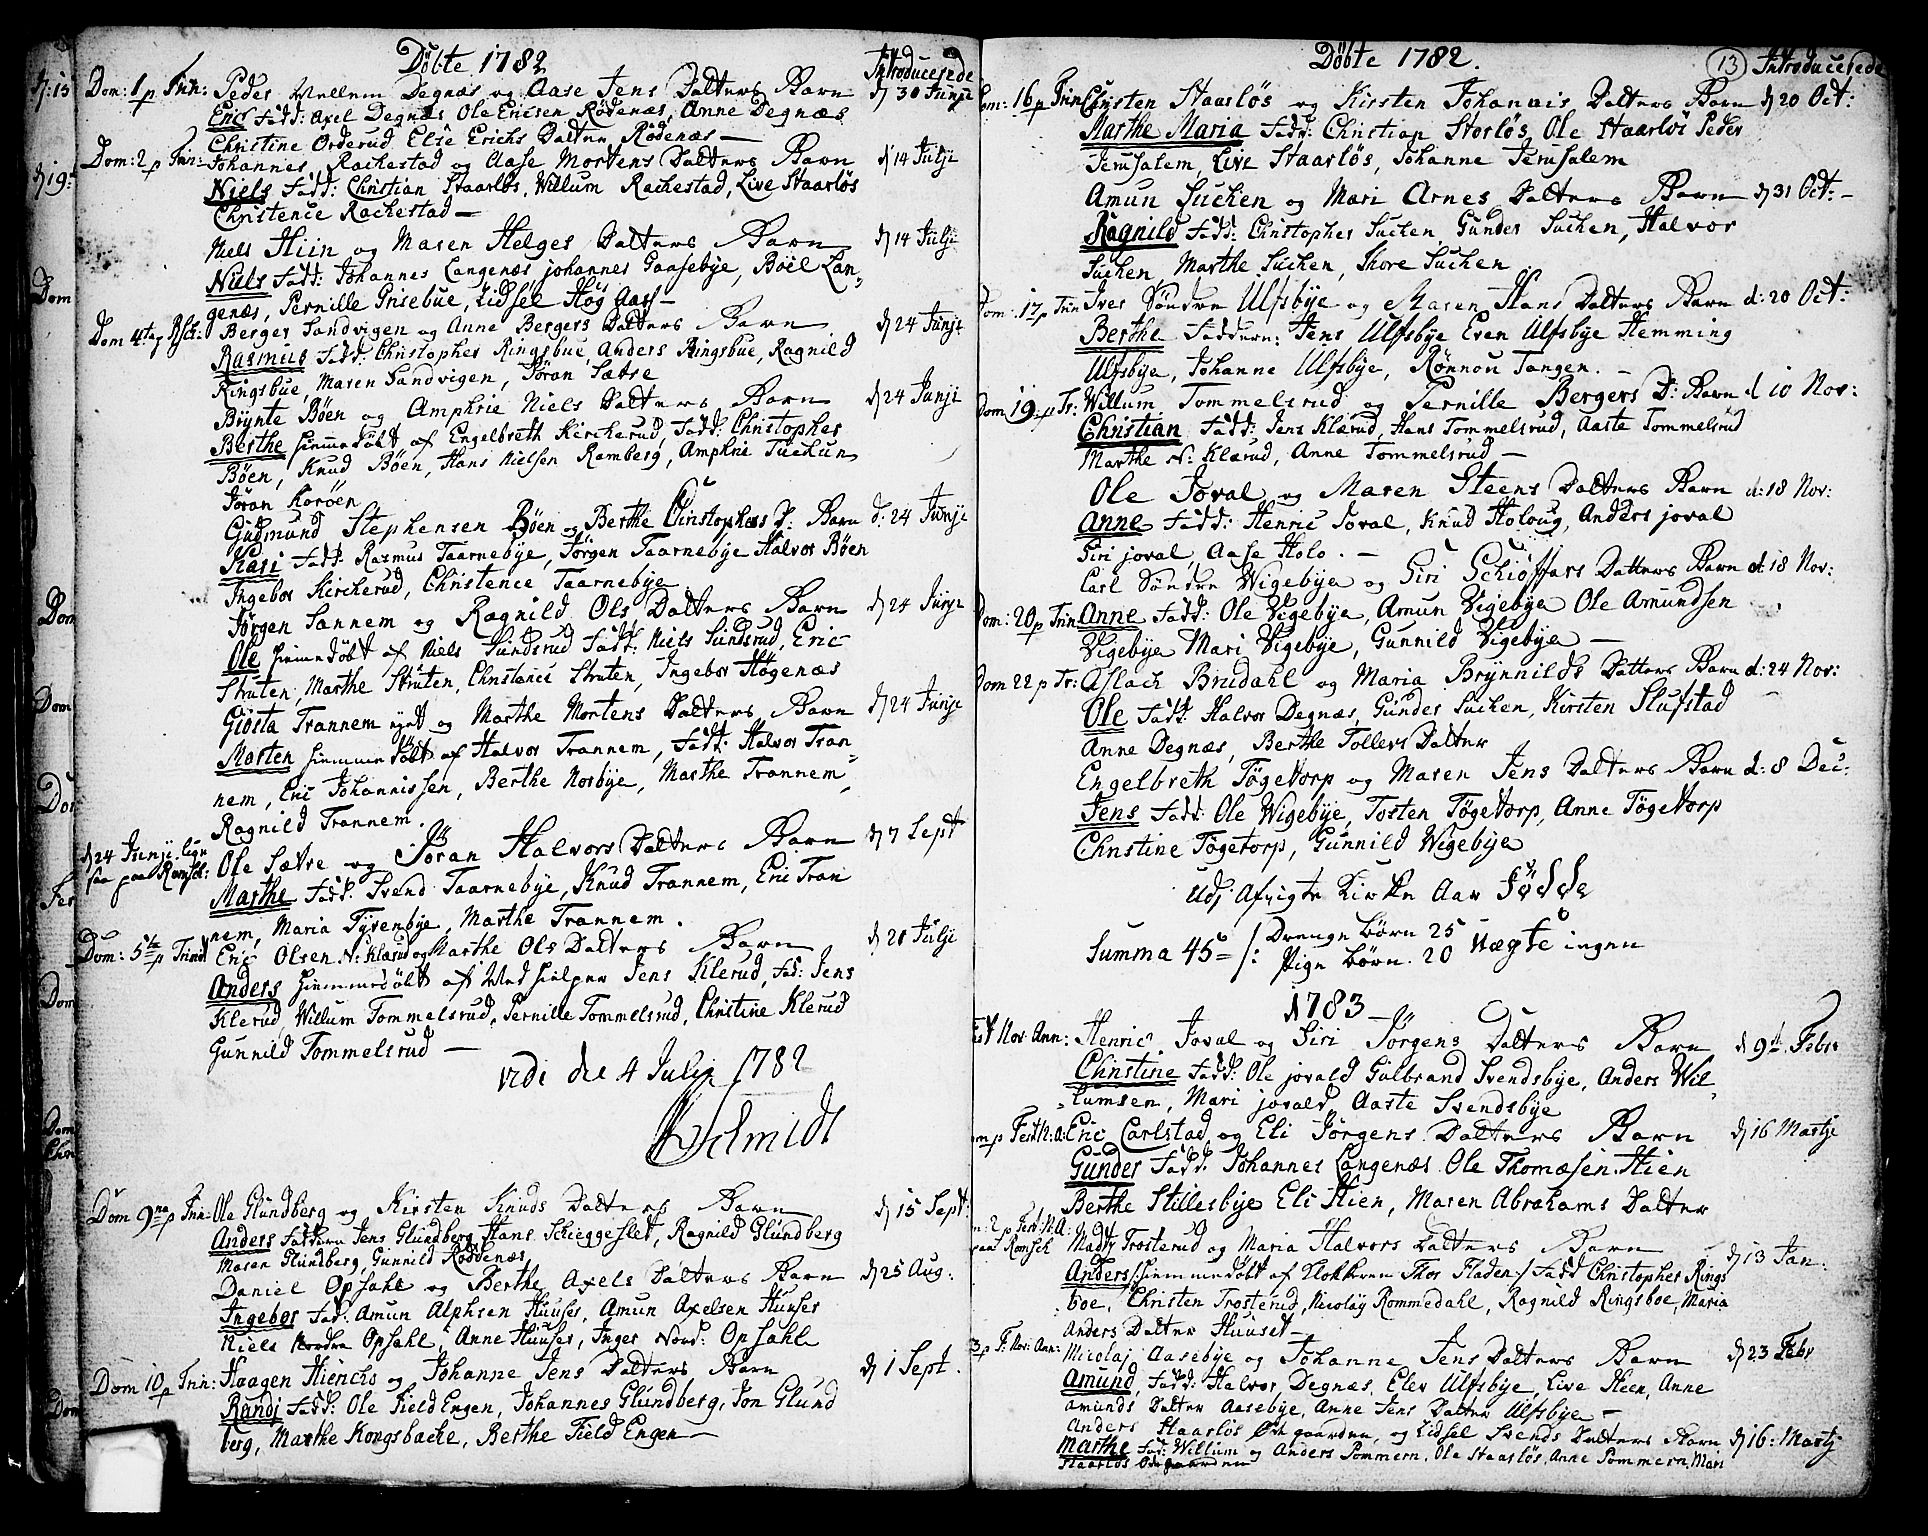 Döbte 1782
Introducerede
Dom: 1 p Trin: Peder Mellem Degnæs og Aase Jens Datters Barn d 30 Junji
Eric Fadd: Axel Degnæs Ole Ericsen Rödenæs, Anne Degnæs
Christine Orderud Else Erichs Datter Rödenæs —
Dom: 2 p Trin: Johannes Rackestad og Aase Mortens Datters Barn d 14 Julji
Niels Fadd: Christian Staarlös, Willum Rackestad, Live Staarlös
Christence Rackestad —
Niels Hiin og Maren Helges Datters Barn d 14 Julji
Niels Fadd: Johannes Langenæs johannes Gaasebye, Böel Lan-
genæs, Pernille Grisebue, Lidsel Hög Aass —
Dom 4ta p Berger Sandvigen og Anne Bergers Datters Barn d 24 Junji
Rasmus Fadd: Christopher Ringsbue, Anders Ringsbue, Ragnild
Ringsbue, Maren Sandvigen, Jöran Sætre
Brynte Böen og Amphrie Niels Datters Barn d 24 Junji
Berthe hiemmedöbt af Engelbreth Kirckerud, Fadd: Christopher
Böen, Knud Böen, Hans Nielsen Ramberg, Amphrie Tuckun
Jöran Koröen
Gudmund Stephensen Böen og Berthe Christophers D: Barn d: 24 Junji
Kari Fadd: Rasmus Taarnebye, Jörgen Taarnebye Halvor Böen
Ingebor Kirckerud, Christence Taarnebye
Jörgen Sannem og Ragnild Ols Datters Barn d 24 Junji
Ole hiemmedöbt af Niels Sundsrud Fadd: Niels Sundsrud, Eric
Struten, Marthe Struten, Christence Struten, Ingebor Högenæs
Giösta Trannem og Marthe Mortens Datters Barn d 24 Junji
Morten hiemmedöbt af Halvor Trannem, Fadd: Halvor Tran-
nem, Eric Johannissen, Berthe Norbye, Marthe Trannem,
Ragnild Trannem.
d 24 Junji lige saa paa Römsk: Ole Sætre og Jöran Halvors Datters Barn d 7 Sept
Marthe Fadd: Svend Taarnebye, Knud Trannem, Eric Tran
nem, Maria Tyrenbye, Marthe Trannem.
Dom: 5te p Trinit Eric Olsen N: Klærud og Marthe Ols Datters Barn d 20 Julji
Anders hiemmedöbt af Medhielper Jens Klerud, Fad: Jens
Klerud, Willum Tommelsrud, Pernille Tommelsrud, Christine Klerud
Gunnild Tommelsrud —
vidi die 4 Julij 1782
Schmidt
Dom 9na p Trin: Ole Glundberg og Kirsten Knuds Datters Barn d 15 Sept:
Anders Faddern Jens Glundberg Hans Schieggeslet, Ragnild Glundberg
Maren Flundberg, Gunnild Röddenæs
Daniel Opsahl og Berthe Axels Datters Barn d 25 Aug:
Ingebor Fad: Amun Alphsen Huuser, Amun Axelsen Huuser
Niels Nordre Opsahl, Anne Huuser, Inger Nord: Opsahl
Dom 10 p Trin: Haagen Hierichs og Johanne Jens Datters Barn d 1 Sept.
Randi Fadd: Ole Field Engen, Johannes Glundberg, Jon Glund
berg, Marthe Kongsbacke, Berthe Field Engen —
Döbte 1782. 13 Introducerede
Dom: 16 p Trin Christen Staarlös og Kirsten Johannis Datters Barn d 20 Oct:
Marthe Maria Fadd: Christian Storlös, Ole Staarlös Peder
Jerusalem, Live Staarlös, Johanne Jerusalem
Amun Sucken og Mari Arnes Datters Barn d 31 Oct: —
Ragnild Fadd: Christopher Sucken, Gunder Sucken, Halvor
Sucken, Marthe Sucken, Thore Sucken
Dom: 17 p Trin Iver Söndre Ulfsbye og Maren Hans Datters Barn d: 20 Oct:
Berthe Faddern: Jens Ulfsbye Even Ulfsbye Hemming
Ulfsbye, Johanne Ulfsbye, Rönnou Tangen. —
Dom 19: p Tr: Willum Tommelsrud og Pernille Bergers D: Barn d 10 Nov:
Christian Fadd: Jens Klerud, Hans Tommelsrud, Aaste Tommelsrud
Marthe N: Klærud, Anne Tommelsrud —
Ole Joval og Maren Steens Datters Barn d: 18 Nov:
Anne Fadd: Henric Joval, Knud Holoug, Anders joval
Siri joval, Aase Holo. —
Carl Söndre Wigebye og Siri Schiöffars Datters Barn d: 18 Nov:
Dom: 20 p Trin Anne Fadd: Ole Vigebye, Amun Vigebye Ole Amundsen
Vigebye Mari Vigebye, Gunnild Vigebye —
Dom 22 p Tr: Aslach Brudahl og Maria Brynnilds Datters Barn d: 24 Nov:
Ole Fadd: Halvor Degnæs, Gunder Sucken, Kirsten Slufstad
Anne Degnæs, Berthe Tollevs Datter
Engelbreth Tögetorp og Maren Jens Datters Barn d: 8 Dec:
Jens Fadd: Ole Wigebye, Tosten Tögetorp, Anne Tögetorp
Christine Tögetorp, Gunnild Wigebye
Udj Afvigte Kirke Aar Födde
Summa 45 /: Drenge börn 25
Pige börn. 20 Uægte ingen
1783 —
Fest Nov Ann: Henric Joval og Siri Jörgens Datters Barn d 9de Febr
Christine Fadd: Ole jovald Gulbrand Svendsbye, Anders Wil
lumsen, Mari jovald Aaste Svendsbye
Dom p Fest N: A: Eric Carlstad og Eli Jörgens Datters Barn d 16 Martji
Gunder Fadd: Johannes Langenæs. Ole Thomæsen Hien
Berthe Stillesbye Eli Hien, Maren Abrahams Datter
2 p Fest: N: A: paa Römsch Madtz Trosterud og Maria Halvors Datters Barn d 13 Jan:
Anders /: hiemmedöbt af Klokkeren Thor Fladen :/ Fadd Christopher Rings
boe, Christen Trosterud, Nicolay Rommedahl, Ragnild Ringsboe, Maria
Anders Datter Huuset —
3 p F: Nov: Ann: Nicolaj Aasebye og Johanne Jens Datters Barn d 23 Febr
Amund, Fadd: Halvor Degnæs, Elev Ulfsbye, Live Heen, Anne
Amunds Datter Aasebye, Anne Jens Datter Ulfsbye —
Anders Staarlös Ödegaarden, og Lidsel Svends Datters Barn d 16: Martj
Marthe Fad: Willum og Anders Pommern, Ole Staarlös, Anne Pommern, Mari
Staarlös Ödegaarden